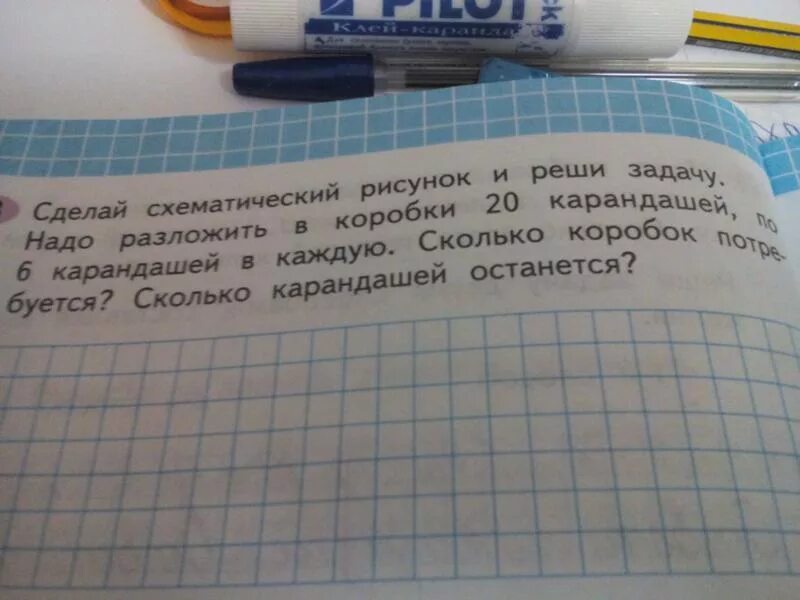 PILOT
Клей-каранда
Сделай схематический рисунок и реши задачу.
Надо разложить в коробки 20 карандашей, по
6 карандашей в каждую. Сколько коробок потре-
буется? Сколько карандашей останется?